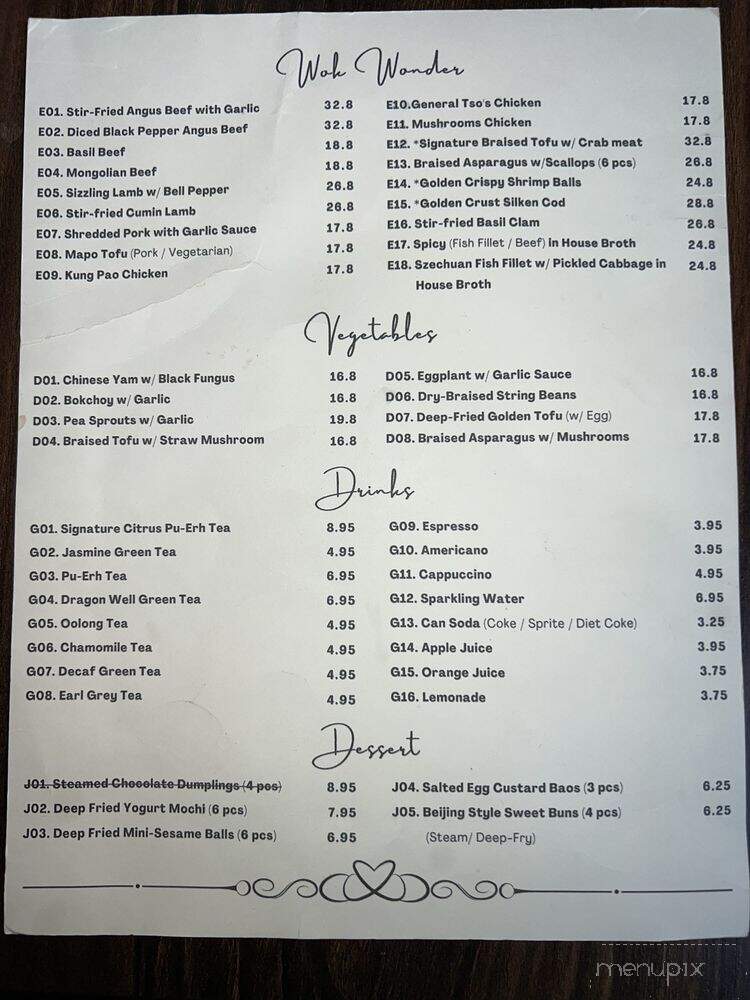 Wok Wonder
E01. Stir-Fried Angus Beef with Garlic 32.8
E02. Diced Black Pepper Angus Beef 32.8
E03. Basil Beef 18.8
E04. Mongolian Beef 18.8
E05. Sizzling Lamb w/ Bell Pepper 26.8
E06. Stir-fried Cumin Lamb 26.8
E07. Shredded Pork with Garlic Sauce 17.8
E08. Mapo Tofu (Pork / Vegetarian) 17.8
E09. Kung Pao Chicken 17.8
E10.General Tso's Chicken 17.8
E11. Mushrooms Chicken 17.8
E12. *Signature Braised Tofu w/ Crab meat 32.8
E13. Braised Asparagus w/Scallops (6 pcs) 26.8
E14. *Golden Crispy Shrimp Balls 24.8
E15. *Golden Crust Silken Cod 28.8
E16. Stir-fried Basil Clam 26.8
E17. Spicy (Fish Fillet / Beef) in House Broth 24.8
E18. Szechuan Fish Fillet w/ Pickled Cabbage in 24.8
House Broth
Vegetables
D01. Chinese Yam w/ Black Fungus 16.8
D02. Bokchoy w/ Garlic 16.8
D03. Pea Sprouts w/ Garlic 19.8
D04. Braised Tofu w/ Straw Mushroom 16.8
D05. Eggplant w/ Garlic Sauce 16.8
D06. Dry-Braised String Beans 16.8
D07. Deep-Fried Golden Tofu (w/ Egg) 17.8
D08. Braised Asparagus w/ Mushrooms 17.8
Drinks
G01. Signature Citrus Pu-Erh Tea 8.95
G02. Jasmine Green Tea 4.95
G03. Pu-Erh Tea 6.95
G04. Dragon Well Green Tea 6.95
G05. Oolong Tea 4.95
G06. Chamomile Tea 4.95
G07. Decaf Green Tea 4.95
G08. Earl Grey Tea 4.95
G09. Espresso 3.95
G10. Americano 3.95
G11. Cappuccino 4.95
G12. Sparkling Water 6.95
G13. Can Soda (Coke / Sprite / Diet Coke) 3.25
G14. Apple Juice 3.95
G15. Orange Juice 3.75
G16. Lemonade 3.75
Dessert
J01. Steamed Chocolate Dumplings (4 pcs) 8.95
J02. Deep Fried Yogurt Mochi (6 pcs) 7.95
J03. Deep Fried Mini-Sesame Balls (6 pcs) 6.95
J04. Salted Egg Custard Baos (3 pcs) 6.25
J05. Beijing Style Sweet Buns (4 pcs) 6.25
(Steam/ Deep-Fry)
menupix